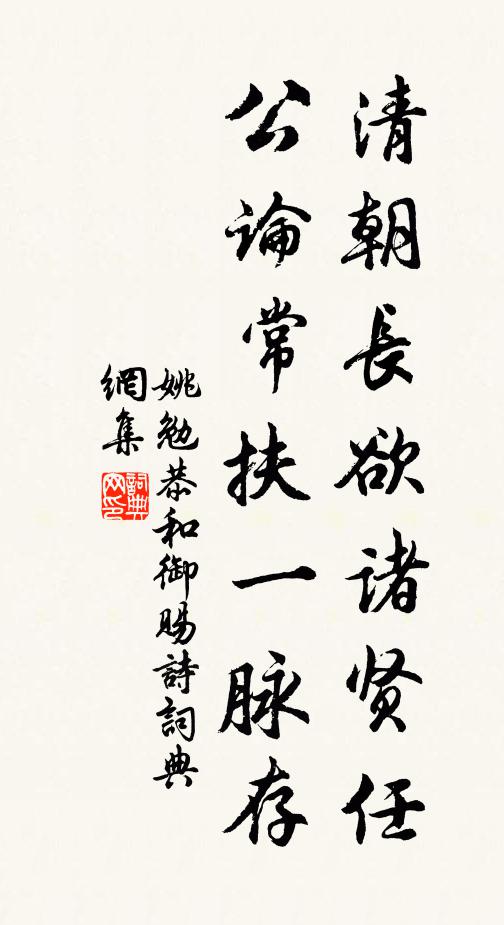 清朝長欲諸贤任
公論常扶一脉存
姚勉恭和御賜詩詞典
網集
詞典
网印